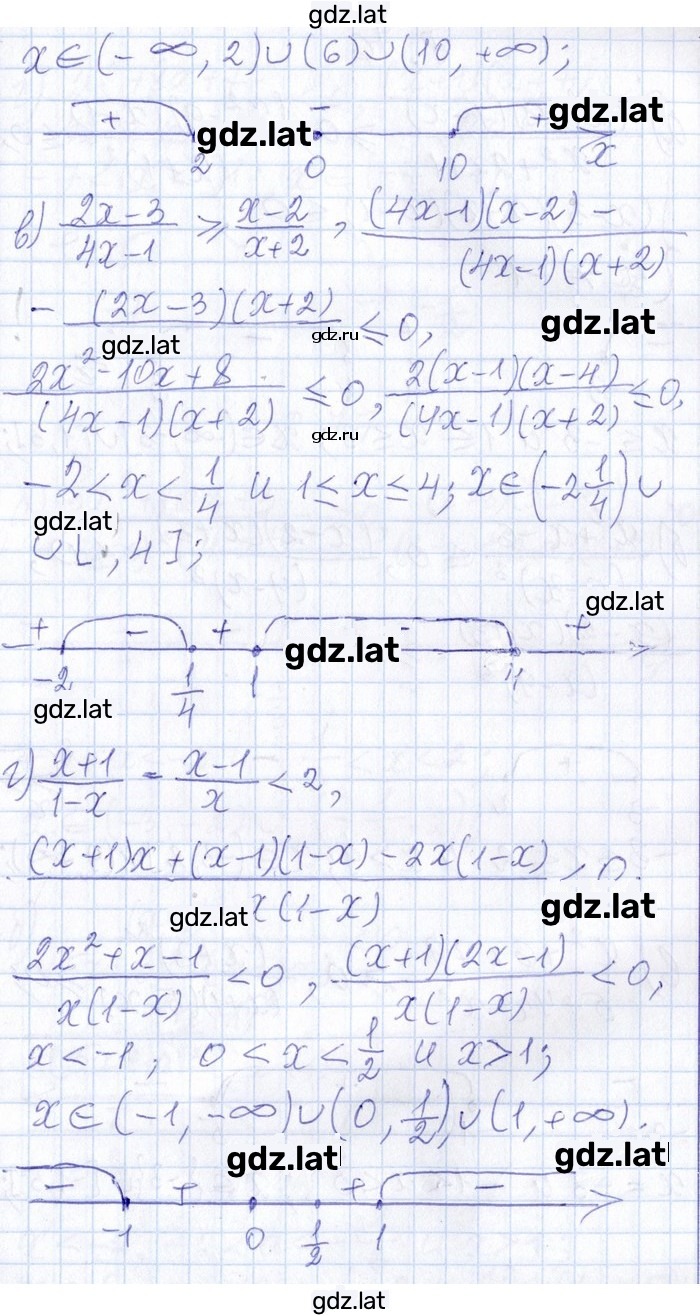 gdz.lat
x ∈ (-∞, 2) ∪ (6) ∪ (10, +∞);
+ - +
gdz.lat gdz.lat
2 0 10 x
в) (2x-3)/(4x-1) ≥ (x-2)/(x+2), ((4x-1)(x-2) -)/((4x-1)(x+2))
- (2x-3)(x+2) ≤ 0,
gdz.lat gdz.ru gdz.lat
(2x²-10x+8)/((4x-1)(x+2)) ≤ 0, (2(x-1)(x-4))/((4x-1)(x+2)) ≤ 0,
gdz.ru
-2 < x < 1/4 и 1 ≤ x ≤ 4; x ∈ (-2 1/4) ∪
gdz.lat
∪ [ , 4];
gdz.lat
+ - + - +
gdz.lat
-2 1/4 1 4
gdz.lat
г) (x+1)/(1-x) - (x-1)/x < 2,
((x+1)x+(x-1)(1-x)-2x(1-x))/(x(1-x))
gdz.lat gdz.lat
(2x²+x-1)/(x(1-x)) < 0, ((x+1)(2x-1))/(x(1-x)) < 0,
x < -1; 0 < x < 1/2 и x > 1;
x ∈ (-1, -∞) ∪ (0, 1/2) ∪ (1, +∞).
gdz.lat gdz.lat
- + + -
-1 0 1/2 1
gdz.lat